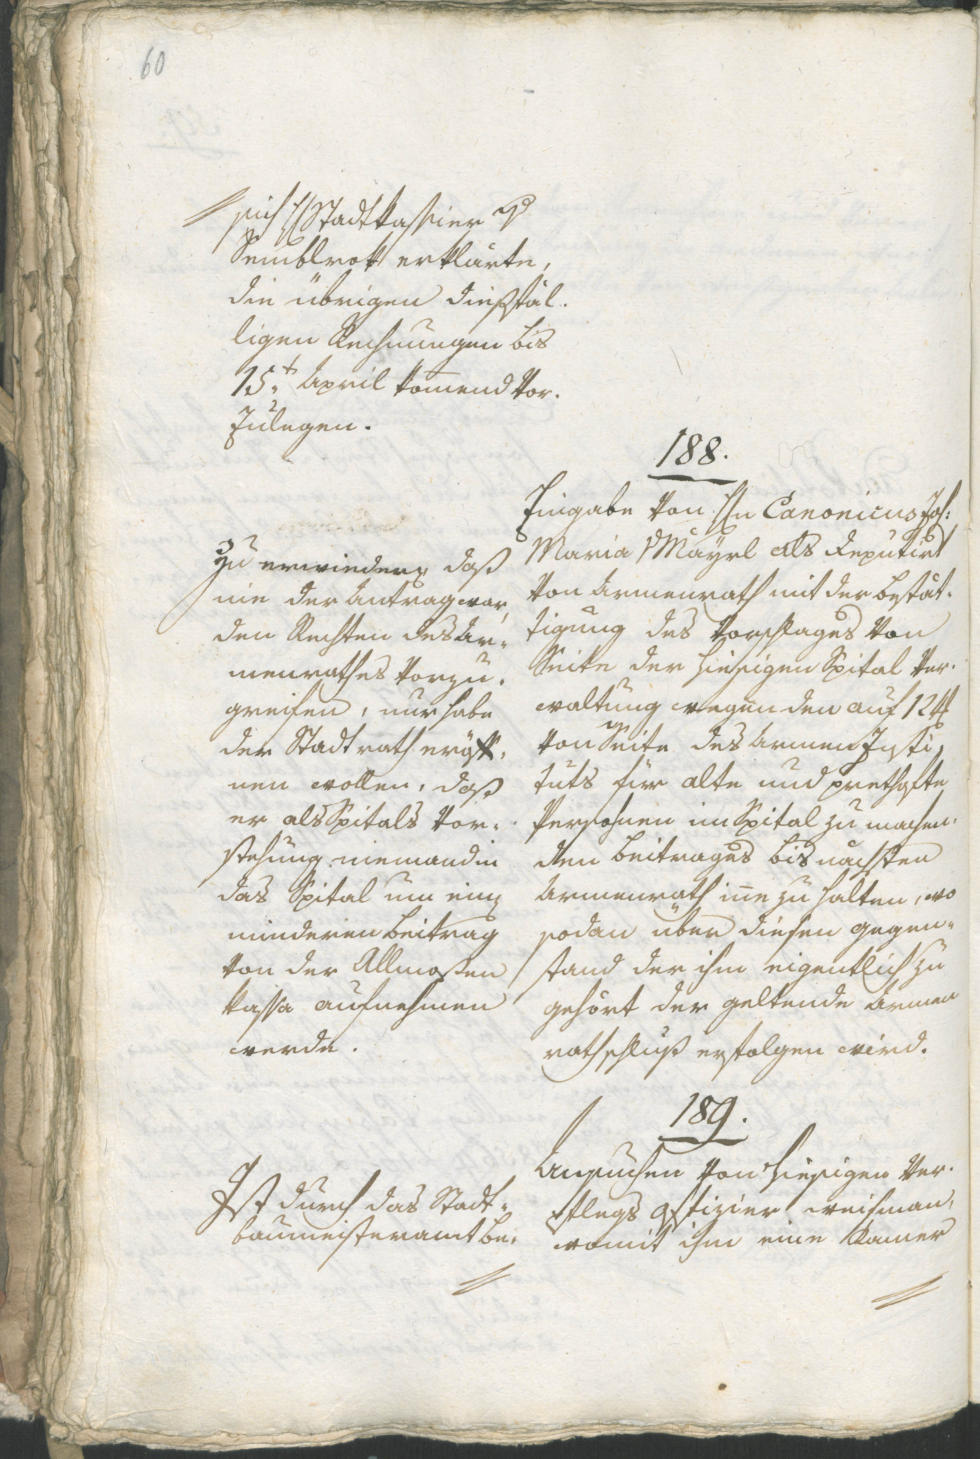 60
sich H Stadtkassier v
Semblrok erklärte,
die übrigen dießfäl-
ligen Rechnungen bis
15.t April kommend vor-
zulegen.
188.
Eingabe von Hn Canonicus Jos:
Maria v Mayrl als Deputirt
von Armenrath mit der Bestät-
tigung des Vorschlages von
Seite der hiesigen Spital Ver-
waltung wegen den auf 12 x
von Seite des Armen Insti-
tuts für alte und presthafte
Persohnen im Spital zu machen-
den Beitrages bis nächsten
Armenrath inne zu halten, wo
sodan über diesen Gegen-
stand der ihm eigentlich zu
gehört der geltende Armen
rathschluß erfolgen wird.
Zu erwiedern daß
nie der Antrag war,
den Rechten des Ar-
menrathes vorzu-
greifen, nur habe
der Stadtrath eröff-
nen wollen, daß
er als Spitals Vor-
stehung niemand in
das Spital um ein
minderen Beitrag
von der Allmosen
kassa aufnehmen
werde.
189.
Ansuchen von hiesigen Ver-
pflegs Offizier Weihman,
womit ihm eine Kamer
Ist durch das Stadt-
baumeisteramt be-